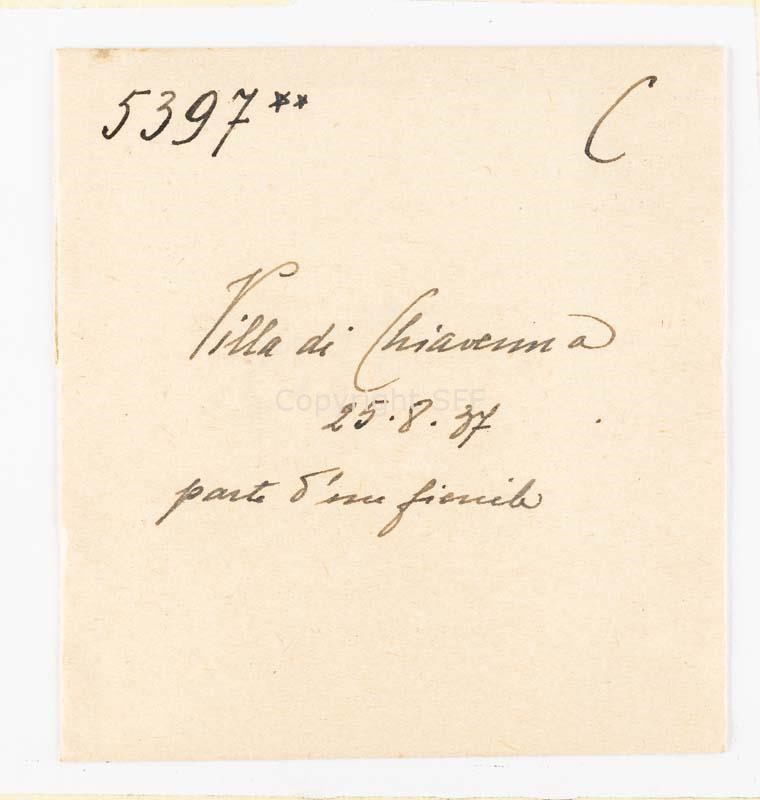 5397** C
Villa di Chiavenna
Copyright SFF
25.8.37
parte d'un fienile